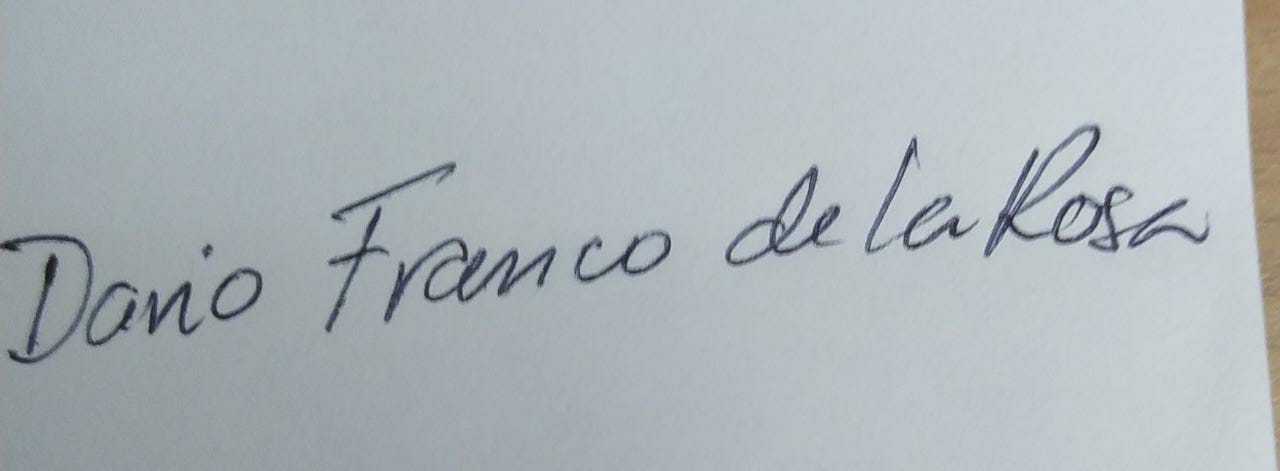 Dario Franco de la Rosa